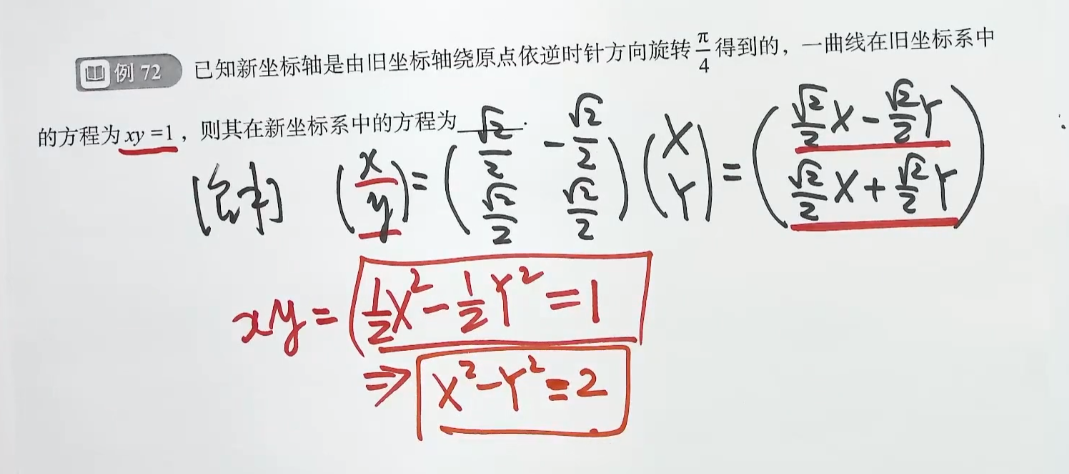 例 72 已知新坐标轴是由旧坐标轴绕原点依逆时针方向旋转 π/4 得到的，一曲线在旧坐标系中
的方程为 xy =1，则其在新坐标系中的方程为______.
[解] (x y) = (√2/2 -√2/2 √2/2 √2/2) (X Y) = (√2/2 X - √2/2 Y √2/2 X + √2/2 Y)
xy = 1/2 X² - 1/2 Y² = 1
⇒ X² - Y² = 2